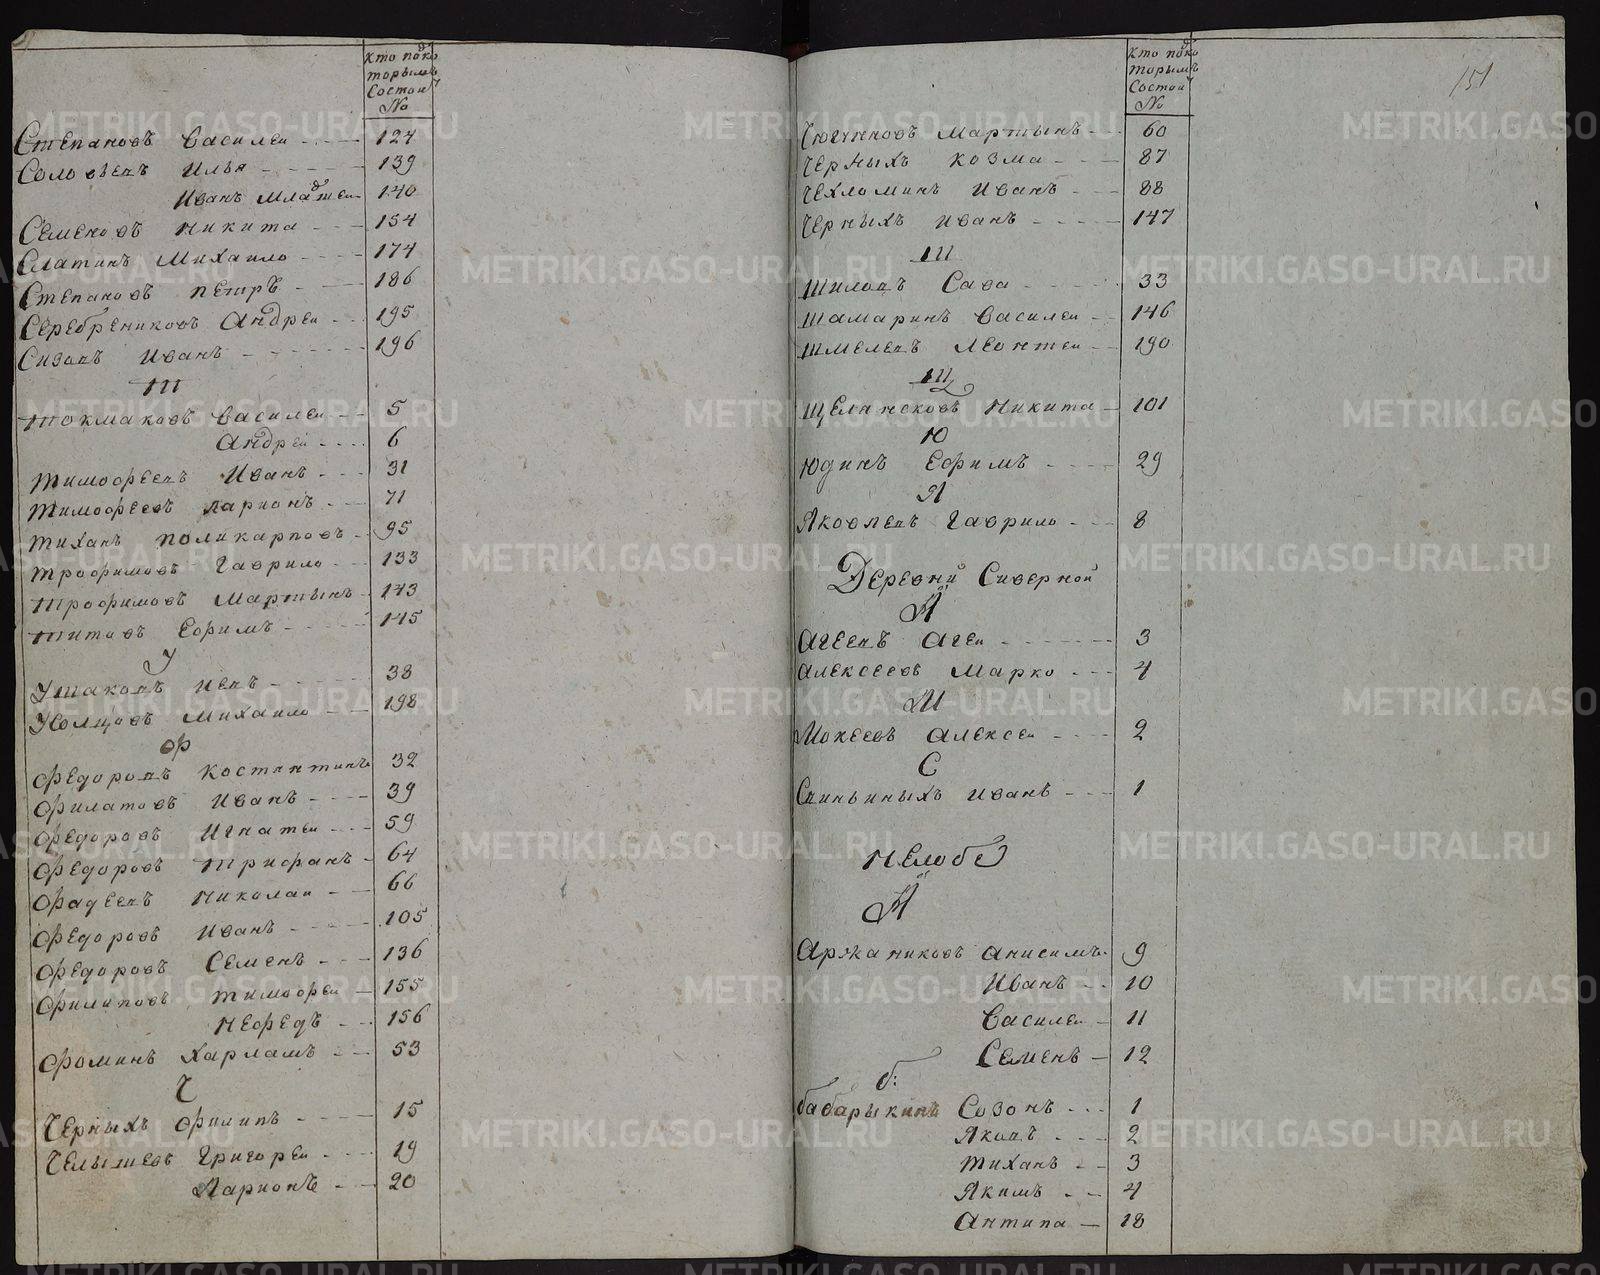 кто подко
торымъ
состои
№
Степановъ Василеи 124
Соловьевъ Илья 139
Иванъ младшеи 140
Семеновъ Никита 154
Слатинъ Михаило 174
Степановъ Петръ 186
Серебрениковъ Андреи 195
Сизовъ Иванъ 196
Т
Токмаковъ Василеи 5
Андреи 6
Тимофеевъ Иванъ 31
Тимофеевъ Ларионъ 71
Тиханъ Поликарповъ 95
Трофимовъ Гаврило 133
Трофимовъ Мартынъ 143
Титовъ Ефимъ 145
У
Ушаковъ 38
Михаило 198
Ф
Федоровъ Костянтинъ 32
Филатовъ Иванъ 39
Федоровъ Игнатеи 59
Федоровъ Трифанъ 64
Фадеевъ Николаи 66
Федоровъ Иванъ 105
Федоровъ Семенъ 136
Филиповъ Тимофеи 155
Нефедъ 156
Фоминъ Харламъ 53
Ч
Черныхъ Филипъ 15
Челышевъ Григореи 19
Ларионъ 20
кто подко
торымъ
состои
№
151
Мартынъ 60
Черныхъ Козма 87
Чехломинъ Иванъ 88
Черныхъ Иванъ 147
Ш
Шиловъ Сава 33
Шамаринъ Василеи 146
Шмелевъ Леонтеи 190
Щ
Никита 101
Ю
Юдинъ Ефимъ 29
Я
Яковлевъ Гаврило 8
Деревни Сиверной
А
Агеевъ Агеи 3
Алексеевъ Марко 4
М
Мокеевъ Алексеи 2
С
Свиньиныхъ Иванъ 1
Нелобе
А
Аржаниковъ Анисимъ 9
Иванъ 10
Василеи 11
Семенъ 12
б:
бабарыкинъ Созонъ 1
Яковъ 2
Тиханъ 3
Якимъ 4
Антипа 18
METRIKI.GASO-URAL.RU